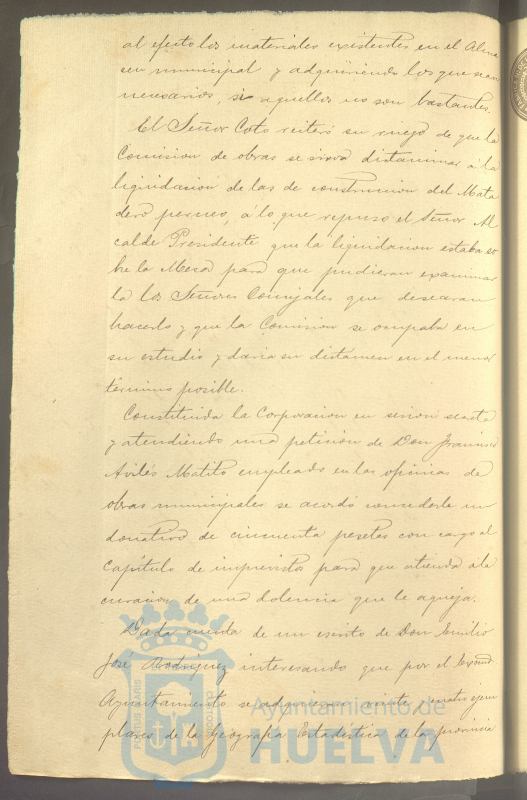 al efecto los materiales existentes en el Alma
cen municipal y adquiriendo los que sean
necesarios, si aquellos no son bastantes.
El Señor Coto reiteró su ruego de que la
Comision de obras se sirva dictaminar á la
liquidacion de las de construccion del Mata
dero porcuno, á lo que repuso el Señor Al
calde Presidente que la liquidacion estaba so
bre la Mesa para que pudieran examinar
la los Señores Concejales que desearan
hacerlo y que la Comision se ocupaba en
su estudio y daria su dictamen en el menor
término posible.
Constituida la Corporacion en sesion secreta
y atendiendo una peticion de Don Francisco
Avilés Matito empleado en las oficinas de
obras municipales se acordó concederle un
donativo de cincuenta pesetas con cargo al
Capitulo de imprevistos para que atienda á la
curacion de una dolencia que le aqueja.
Dada cuenta de un escrito de Don Emilio
José Rodriguez interesando que por el Excmo
Ayuntamiento se adquieran veinte y cuatro ejem
plares de la Geografia Estadistica de la provincia
Ayuntamiento de
HUELVA